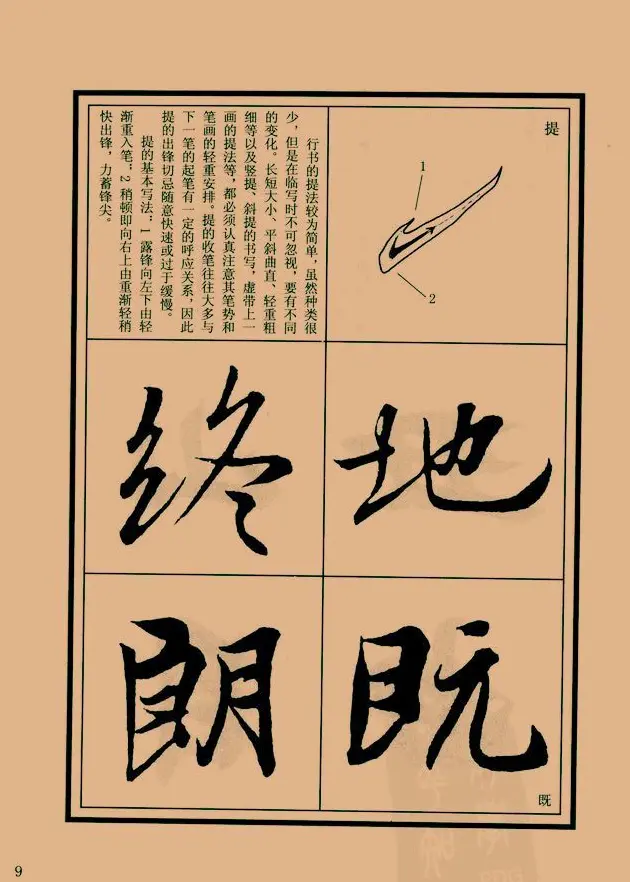 提
1
2
行书的提法较为简单，虽然种类很
少，但是在临写时不可忽视，要有不同
的变化。长短大小、平斜曲直、轻重粗
细等以及竖提、斜提的书写，虚带上一
画的提法等，都必须认真注意其笔势和
笔画的轻重安排。提的收笔往往大多与
下一笔的起笔有一定的呼应关系，因此
提的出锋切忌随意快速或过于缓慢。
提的基本写法：1 露锋向左下由轻
渐重入笔；2 稍顿即向右上由重渐轻稍
快出锋，力蓄锋尖。
地
终
既
既
朗
9